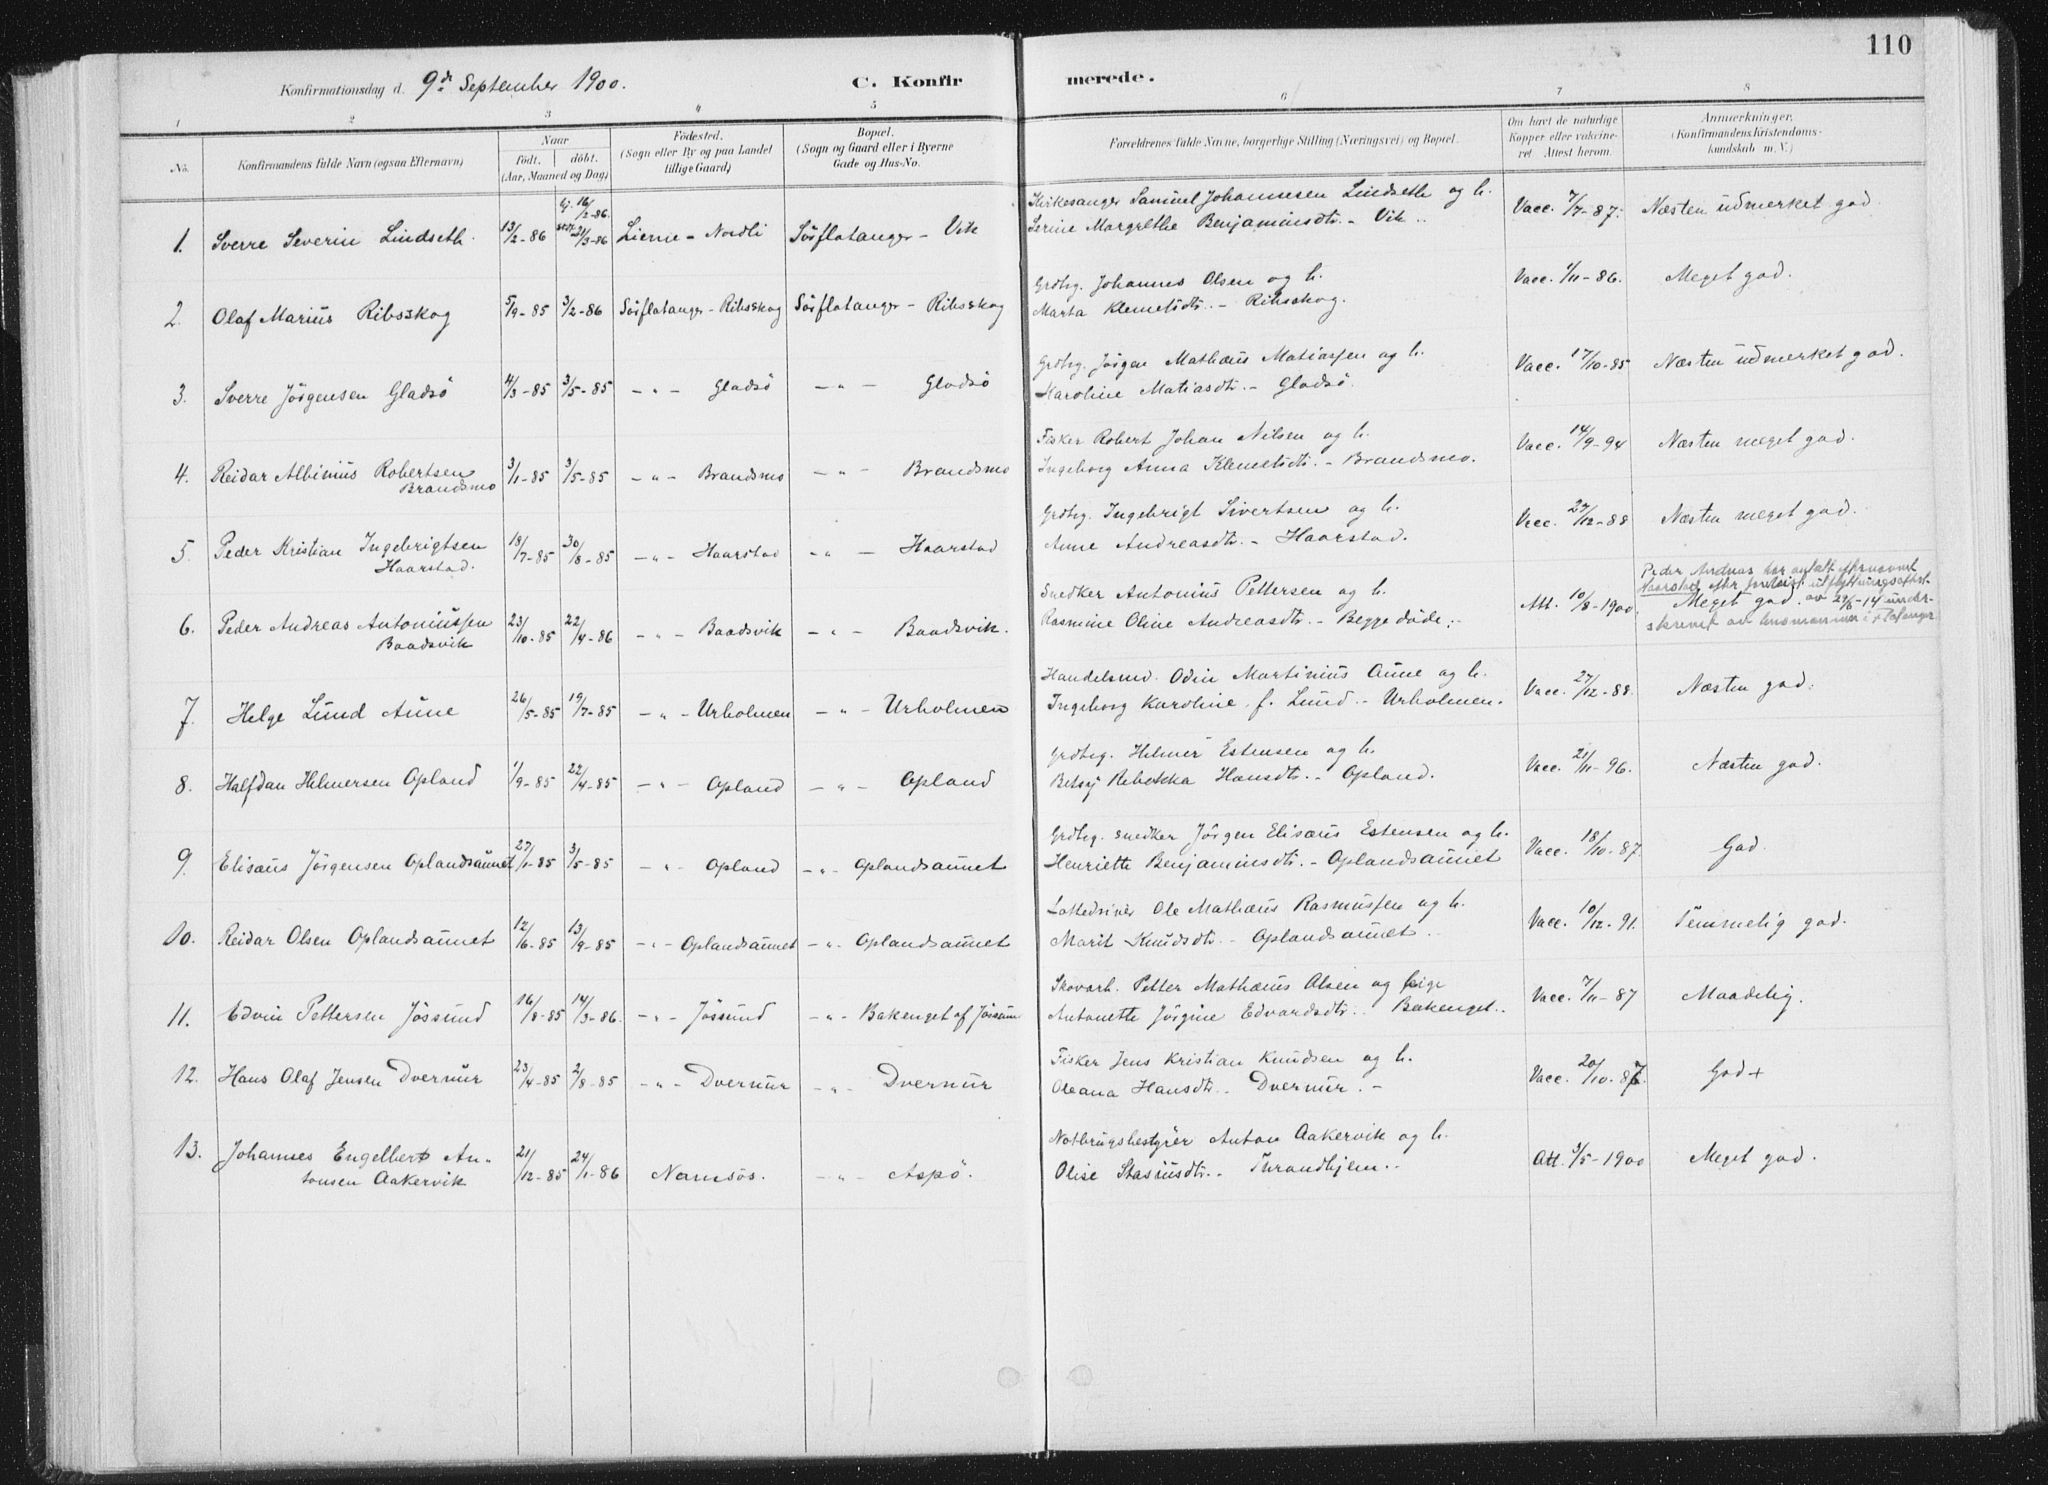 110
Konfirmationsdag d. 9de September 1900. C. Konfirmerede.
1 2 3 4 5 6 7 8
No. Konfirmandens fulde Navn (ogsaa Efternavn) Naar födt. döbt. (Aar, Maaned og Dag) Födested. (Sogn eller By og paa Landet tillige Gaard) Bopæl. (Sogn og Gaard eller i Byerne Gade og Hus-No. Forældrenes fulde Navne, borgerlige Stilling (Næringsvei) og Bopæl. Om havt de naturlige Kopper eller vaccineret. Attest herom. Anmærkninger. (Konfirmandens Kristendomskundskab m. V.)
Kirkesanger Samuel Johannesen Lindseth og h.
1. Sverre Severin Lindseth. 13/2-86 16/2-86. 21/3-86 Lierne - Nordli Sörflatanger - Vik Serine Margrethe Benjaminsdtr. - Vik .. Vacc. 7/7-87. Næsten udmerket god.
Grdbrg. Johannes Olsen og h.
2. Olaf Marius Ribsskog 5/9-85 3/2-86 Sörflatanger - Ribsskog Sörflatanger - Ribsskog Marta Klemetsdtr. - Ribsskog. Vacc. 1/11-86. Meget god.
Grdbrg. Jörgen Mathæus Matiassen og h.
3. Sverre Jörgensen Gladsö 4/3-85 3/5-85 - " - Gladsö - " - Gladsö Karoline Matiasdtr. - Gladsö. Vacc. 17/10-85 Næsten udmerket god.
Fisker Robert Johan Nilsen og h.
4. Reidar Albinius Robertsen 3/1-85 3/5-85 - " - Brandsmo - " - Brandsmo Ingeborg Anna Klemetsdtr. - Brandsmo. Vacc. 14/9-94 Næsten meget god.
Brandsmo
Grdbrg. Ingebrigt Sivertsen og h.
5. Peder Kristian Ingebrigtsen 18/7-85 30/8-85 - " - Haarstad - " - Haarstad Anne Andreasdtr. - Haarstad. Vacc. 27/12-88 Næsten meget god.
Haarstad.
Peder Andreas har antatt efternavnet
Haarstad efter utflytningsattest
Snedker Antonius Pettersen og h.
6. Peder Andreas Antoniussen 23/10-85 22/4-86 - " - Baadsvik - " - Baadsvik. Rasmine Oline Andreasdtr. - Begge döde. - Att. 10/8-1900. Meget god. av 29/6-14 under-
Baadsvik skrevet av
Handelsmd. Odin Martinius Aune og h.
7. Helge Lund Aune 26/5-85 19/7-85 - " - Urholmen - " - Urholmen Ingeborg Karoline f. Lund - Urholmen. Vacc. 27/12-88. Næsten god.
Grdbrg. Helmer Estensen og h.
8. Halfdan Helmersen Opland 1/9-85 22/4-85 - " - Opland - " - Opland Betsy Rebekka Hansdtr. - Opland. Vacc. 21/11-96. Næsten god.
Grdbrg. snedker Jörgen Elisæus Estensen og h.
9. Elisæus Jörgensen Oplandsaunet 27/1-85 3/5-85 - " - Opland - " - Oplandsaunet Henriette Benjaminsdtr. - Oplandsaunet Vacc. 18/10-87. God.
Ole Mathæus Rasmussen og h.
10. Reidar Olsen Oplandsaunet 12/6-85 13/9-85 - " - Oplandsaunet - " - Oplandsaunet Marit Knudsdtr. - Oplandsaunet .. Vacc. 10/12-91. Temmelig god.
Skovarb. Petter Mathæus Olsen og pige
11. Edvin Pettersen Jössund 16/8-85 14/3-86. - " - Jössund - " - Bakenget af Jössund Antonette Jörgine Edvardsdtr. .. Bakenget. Vacc. 7/11-87 Maadelig.
Fisker Jens Kristian Knudsen og h.
12. Hans Olaf Jensen Dvernur 23/4-85 2/8-85 - " - Dvernur - " - Dvernur Oleana Hansdtr. - Dvernur. - Vacc. 20/10-87. God +
Notbrugsbestyrer Anton Aakervik og h.
13. Johannes Engelbert An- 21/12-85 24/1-86 Namsos. - " - Aspö. Olise Stasiusdtr. - Throndhjem .. Att. 3/5-1900 Meget god.
tonsen Aakervik